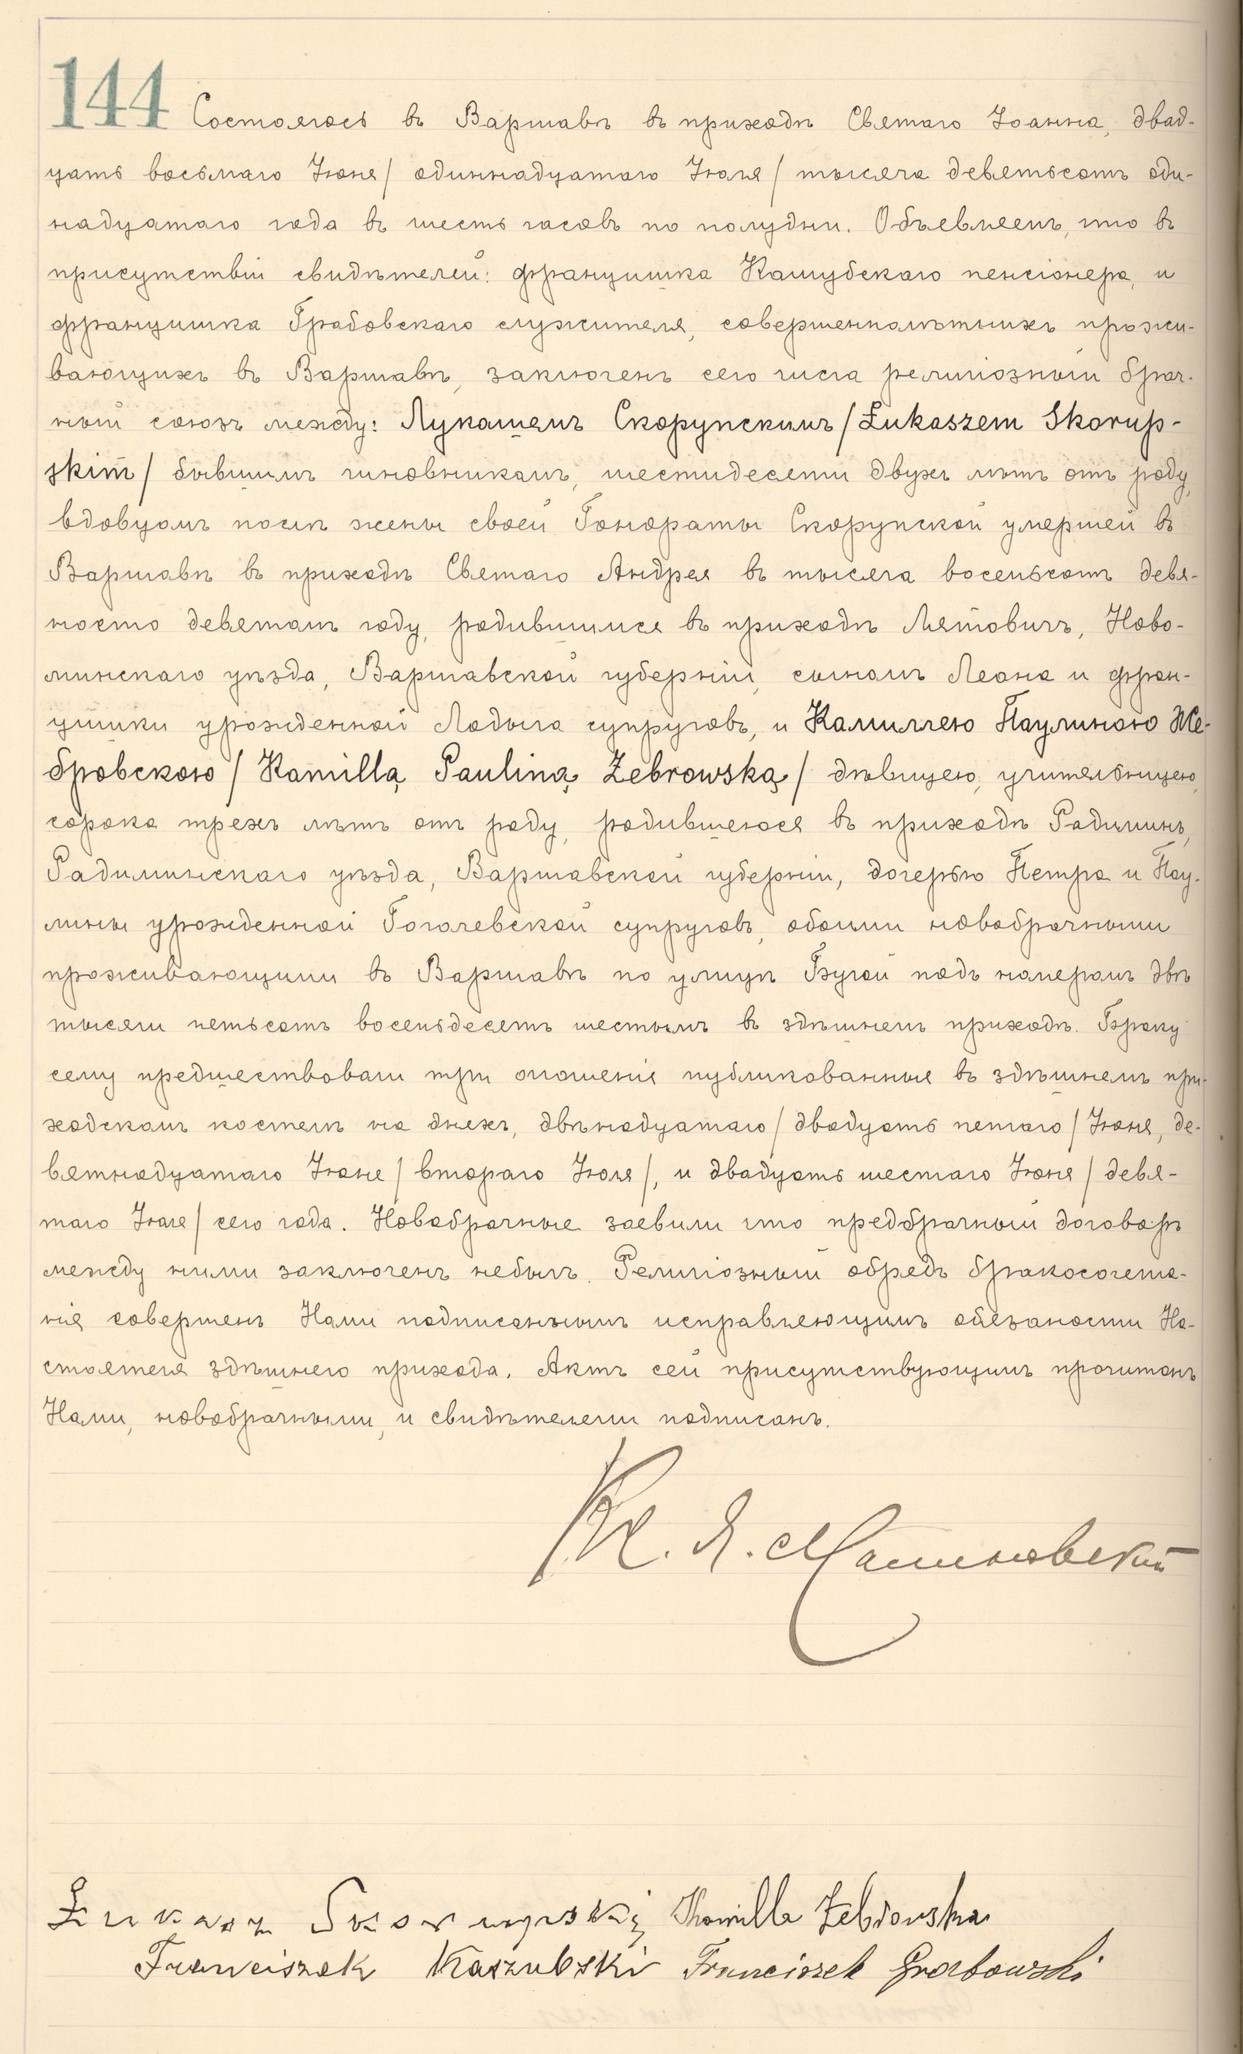 144 Состоялось въ Варшавѣ въ приходѣ Святаго Іоанна, двад-
цать восьмаго Іюня / одиннадцатаго Іюля / тысяча девятьсотъ оди-
надцатаго года въ шесть часовъ по полудни. Объявляемъ, что въ
присутствіи свидѣтелей: Францишка Кашубскаго пенсіонера, и
Францишка Грабовскаго служителя, совершеннолѣтнихъ прожи-
вающихъ въ Варшавѣ, заключенъ сего числа религіозный брач-
ный союзъ между: Лукашемъ Скорупскимъ / Łukaszem Skorup-
skim / бывшимъ чиновникомъ, шестидесяти двухъ лѣтъ отъ роду,
вдовцомъ послѣ жены своей Гонораты Скорупской умершей въ
Варшавѣ въ приходѣ Святаго Андрея въ тысяча восемьсотъ девя-
носто девятомъ году, родившимся въ приходѣ Лятовичъ, Ново-
минскаго уѣзда, Варшавской губерніи, сыномъ Леона и Фран-
цишки урожденной Ладыга супруговъ, и Камиллею Паулиною Же-
бровскою / Kamillą Pauliną Żebrowską / дѣвицею, учительницею,
сорока трехъ лѣтъ отъ роду, родившеюся въ приходѣ Радиминъ,
Радиминскаго уѣзда, Варшавской губерніи, дочерью Петра и Пау-
лины урожденной Гогачевской супруговъ, обоими новобрачными
проживающими въ Варшавѣ по улицѣ Бугай подъ номеромъ двѣ
тысячи пятьсотъ восемьдесятъ шестымъ въ здѣшнемъ приходѣ. Браку
сему предшествовали три оглошенія публикованныя въ здѣшнемъ при-
ходскомъ костелѣ на дняхъ, двѣнадцатаго / двадцать пятаго / Іюня, де-
вятнадцатаго Іюня / втораго Іюля /, и двадцать шестаго Іюня / девя-
таго Іюля / сего года. Новобрачные заявили что предбрачный договоръ
между ними заключенъ небылъ. Религіозный обрядъ бракосочета-
нія совершенъ Нами подписаннымъ исправляющимъ обязаности На-
стоятеля здѣшнего прихода. Актъ сей присутствующимъ прочитанъ
Нами, новобрачными, и свидѣтелями подписанъ.
Кс. Я. Малиновскій
Łukasz Skorupski, Kamilla Żebrowska
Franciszek Kaszubski Franciszek Grabowski